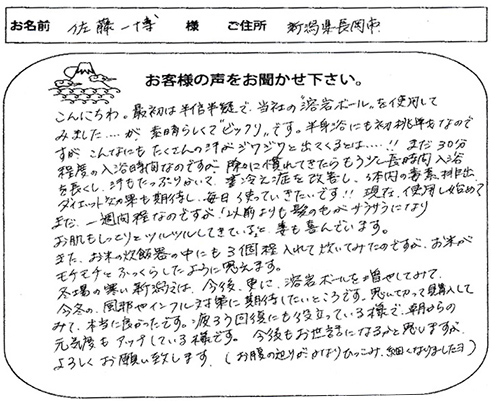 お名前 佐藤一博 様 ご住所 新潟県長岡市
お客様の声をお聞かせ下さい。
こんにちわ。最初は半信半疑で、当社の"溶岩ボール"を使用して
みました…が 素晴らしくて"ビックリ"です。半身浴にも初挑戦なので
すが、こんなにもたくさんの汗がジワジワと出てくるとは…!! まだ30分
程度の入浴時間なのですが、除々に慣れてきたらもう少し長時間入浴
を長くし、汗もたっぷりかいて、妻冷え症を改善し、体内の毒素排出、
ダイエットなど効果も期待し、毎日使っていきたいです!! 現在、使用し始めて
まだ一週間程なのですが!以前よりも髪の毛がサラサラになり
お肌もしっとりとツルツルしてきていると、妻も喜んでいます。
また、お米の炊飯器の中にも3個程入れて炊いてみたのですが、お米が
モチモチとふっくらしたように思えます。
冬場の寒い新潟では、今後、更に、溶岩ボールを増やしてみて、
今冬の、風邪やインフル対策に期待したいところです。思い切って購入して
みて、本当に良かったです。疲ろう回復にも役立っている様で、朝からの
元気度もアップしている様です。 今後もお世話になるかと思いますが、
よろしくお願い致します。(お腹の辺りがかなりひっこみ、細くなりましたヨ)